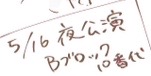 5/16 夜公演
Bブロック
10番代